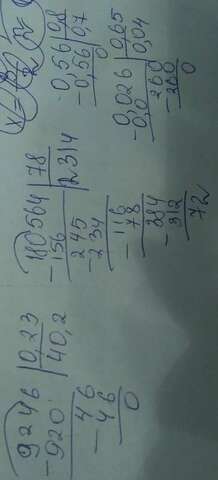 9246 | 0,23
-920 | 40,2
- 46
46
0
180564 | 78
-156 | 2314
245
-234
116
- 78
384
- 312
72
0,56 | 0,8
-0,56 | 0,7
0
0,026 | 0,65
-0,0 | 0,04
260
- 260
0